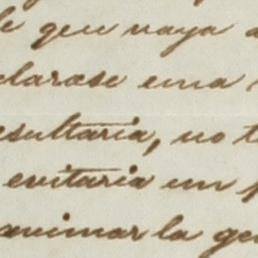 e que vaya a
clarase una
esultaria, no t
evitaria un p
animar la ge